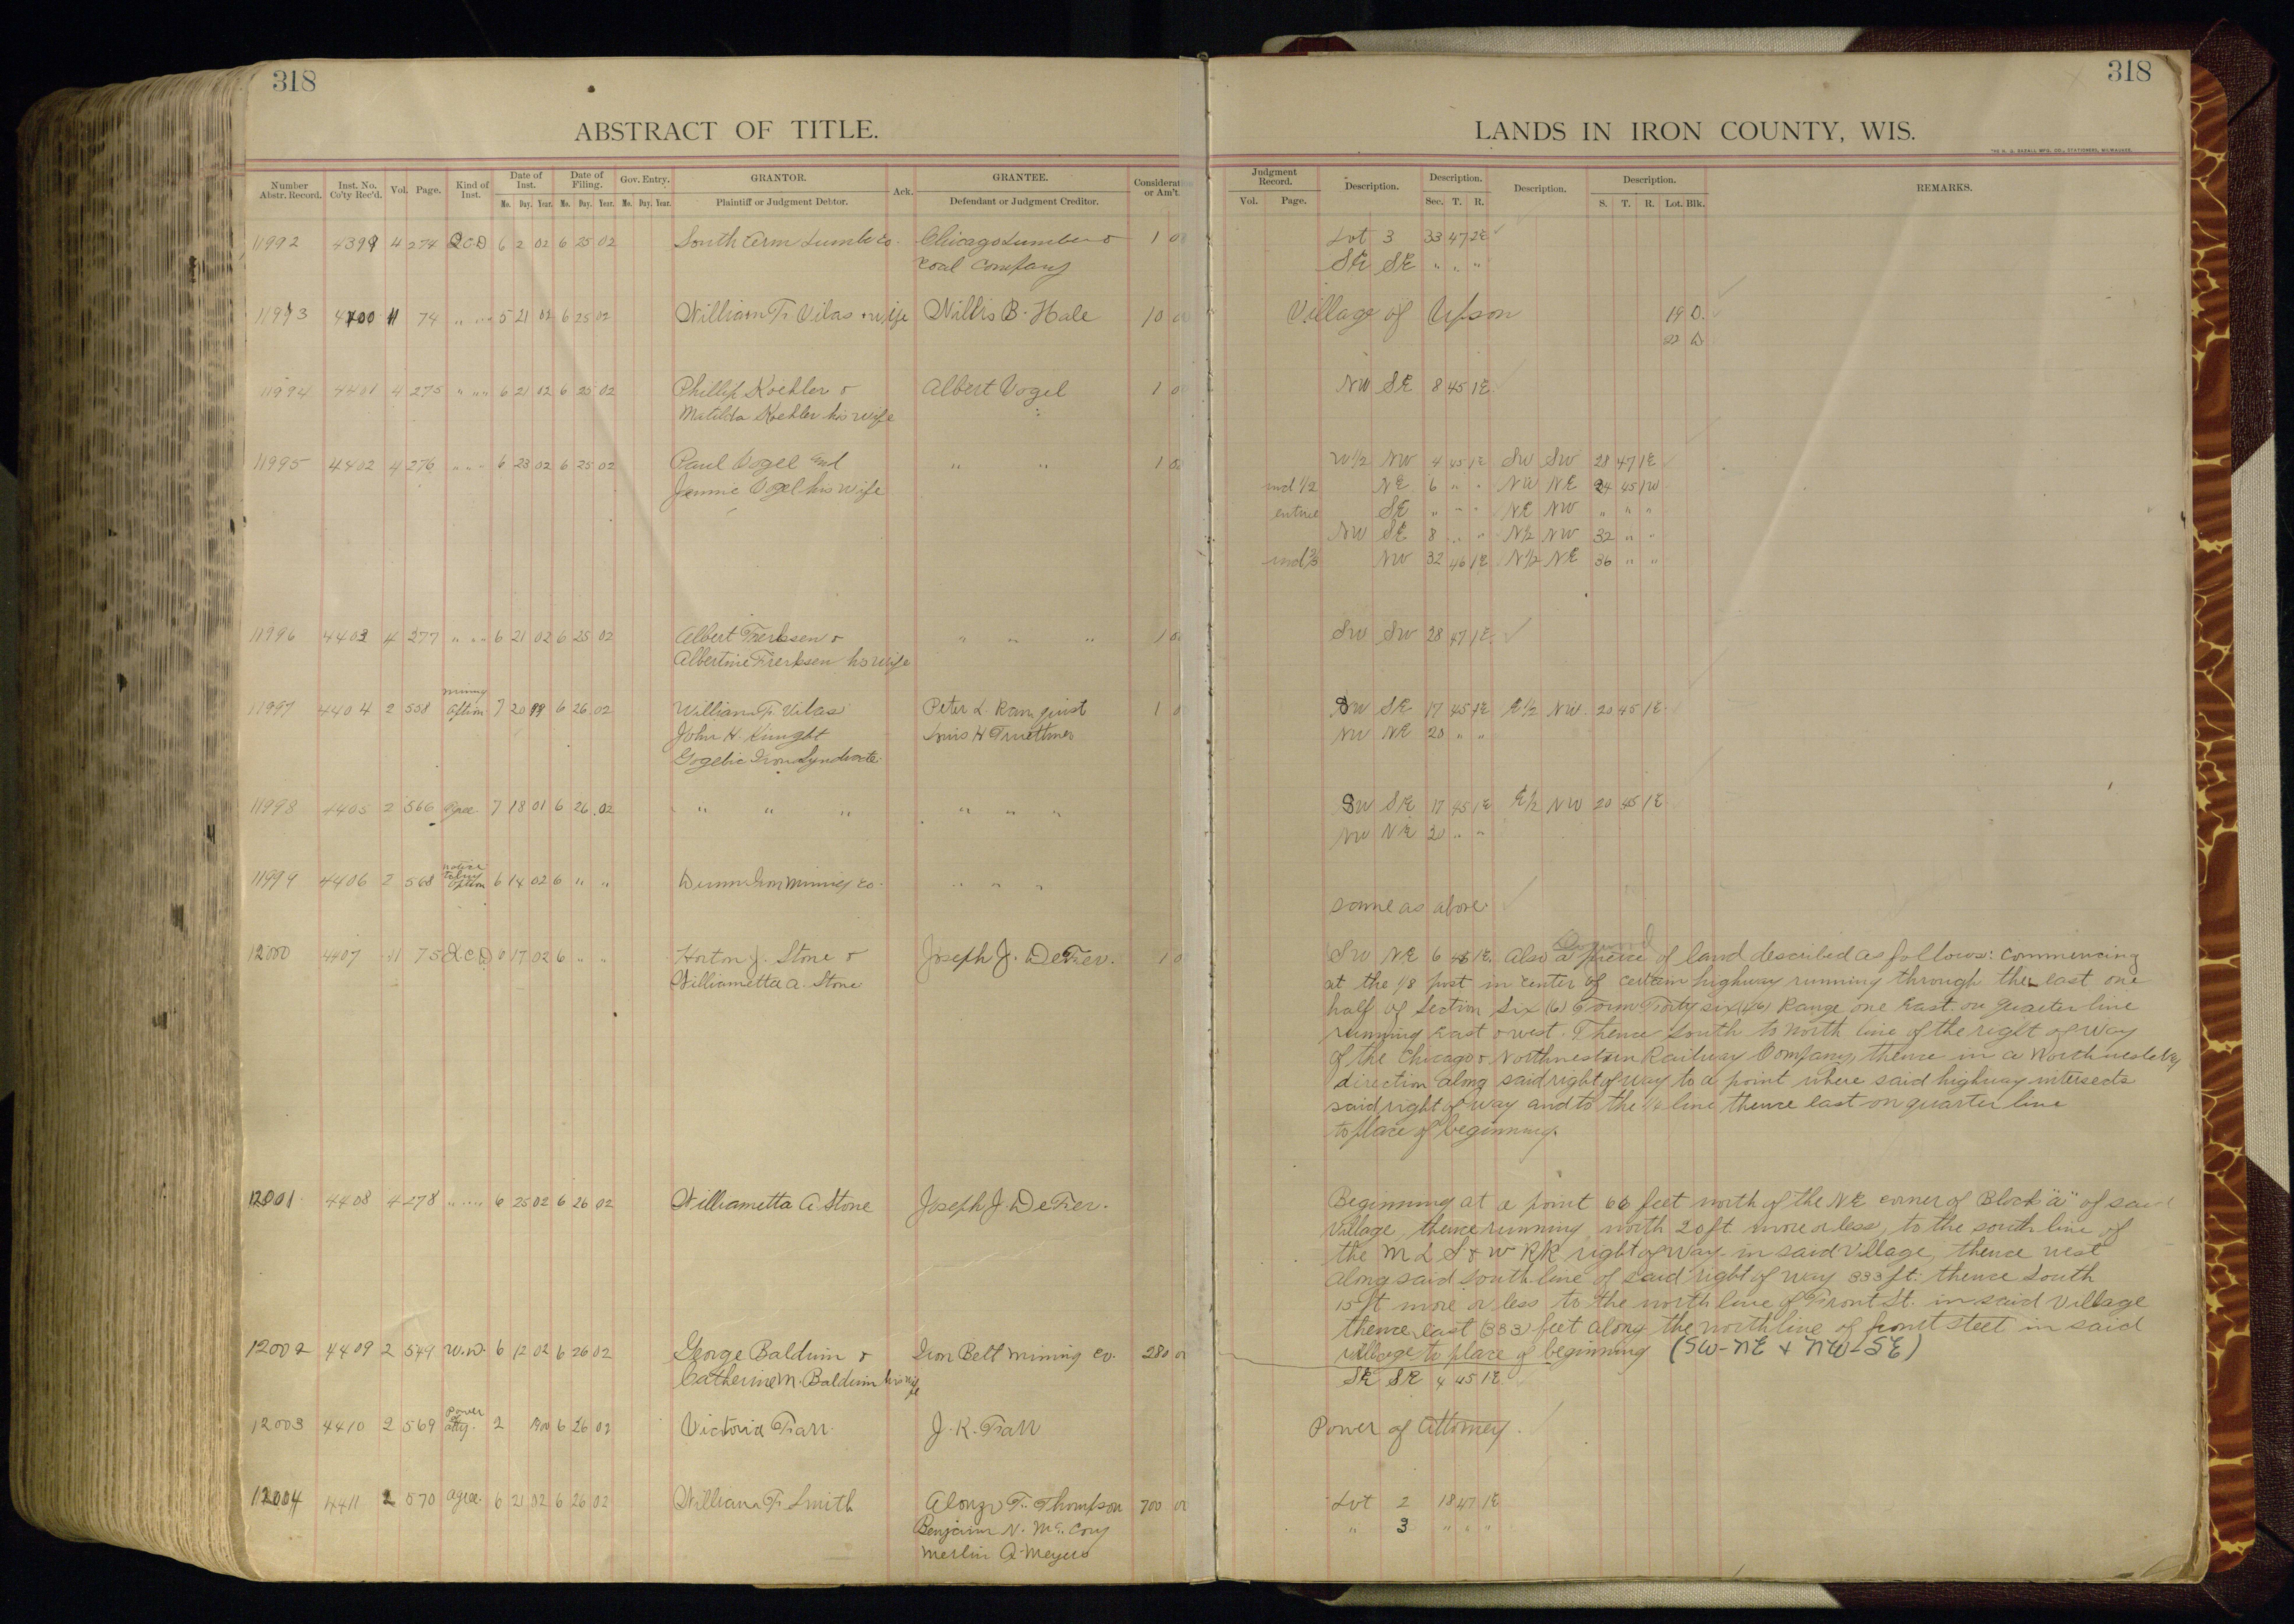 318
318
ABSTRACT OF TITLE.
LANDS IN IRON COUNTY, WIS.
THE H. G. RAZALL MFG. CO., STATIONERS, MILWAUKEE.
Number Abstr. Record. Inst. No. Co'ty Rec'd. Vol. Page. Kind of Inst. Date of Inst. Mo. Day. Year. Date of Filing. Mo. Day. Year. Gov. Entry. Mo. Day. Year. GRANTOR. Plaintiff or Judgment Debtor. Ack. GRANTEE. Defendant or Judgment Creditor. Considerat or Am't.
Judgment Record. Vol. Page. Description. Description. Sec. T. R. Description. Description. S. T. R. Lot. Blk. REMARKS.
11992 4399 4 274 Q.C.D 6 2 02 6 25 02 South Arm Lumber Co. Chicago Lumber & 1 00 Lot 3 33 47 2E
Coal Company SE SE " " "
11993 4400 11 74 " " " 5 21 02 6 25 02 William F. Vilas & wife Willis B. Hale 10 00 Village of Upson 19 D.
22 D
11994 4401 4 275 " " " 6 21 02 6 25 02 Phillip Koehler & Albert Vogel 1 0 NW SE 8 45 1E
Matilda Koehler his wife
11995 4402 4 276 " " " 6 23 02 6 25 02 Paul Vogel and " " 1 00 W½ NW 4 45 1E SW SW 28 47 1E
Jennie Vogel his wife und ½ NE 6 " " NW NE 24 45 1W
entire SE " " " NE NW " " "
NW SE 8 " " N½ NW 32 " "
und NW 32 46 1E N½ NE 36 " "
11996 4403 4 277 " " " 6 21 02 6 25 02 Albert Frerksen & " " " 1 00 SW SW 28 47 1E
Albertine Frerksen his wife
mining
11997 4404 2 558 option 7 20 99 6 26 02 William F. Vilas Peter L. Ramquist 1 0 SW SE 17 45 1E E½ NW 20 45 1E
John H. Knight Louis H Truettner NW NE 20 " "
Gogebic Iron Syndicate
11998 4405 2 566 Agree. 7 18 01 6 26 02 " " " " " " SW SE 17 45 1E E½ NW 20 45 1E
NW NE 20 " "
notice
11999 4406 2 568 option 6 14 02 6 " " Iron Mining Co. " " "
same as above
12000 4407 11 75 Q.C.D 6 17 02 6 " " Horton J. Stone & Joseph J. DeFier. 1 0 SW NE 6 46 1E. Also a piece of land described as follows: Commencing
Williametta A. Stone at the 1/8 post in center of certain highway running through the east one
half of Section Six (6) Town Forty six (46) Range one East on quarter line
running East & west. Thence South to North line of the right of way
of the Chicago & Northwestern Railway Company, thence in a Northwesterly
direction along said right of way to a point where said highway intersects
said right of way and to the ¼ line thence east on quarter line
to place of beginning.
12001 4408 4 278 " " " 6 25 02 6 26 02 Williametta A. Stone Joseph J. DeFier. Beginning at a point 66 feet north of the NE corner of Block "A" of said
Village, thence running north 20 ft more or less, to the south line of
the M L S & W RR right of way in said Village, thence west
along said south line of said right of way 333 ft. thence South
15 ft more or less to the north line of Front St. in said Village
thence east (333) feet along the north line of front steet in said
12002 4409 2 549 W.D. 6 12 02 6 26 02 George Baldwin & Iron Belt Mining Co. 280 00 village to place of beginning (SW-NE & NW-SE)
Catherine M. Baldwin his wife SE SE 4 45 1E
Power of
12003 4410 2 569 atty. 2 6 26 02 Victoria Farr J. K. Farr Power of Attorney.
12004 4411 2 570 agree. 6 21 02 6 26 02 William F. Smith Alonzo T. Thompson 700 00 Lot 2 18 47 1E
Benjamin N. McCory " 3 " " "
Merlin Q. Meyers